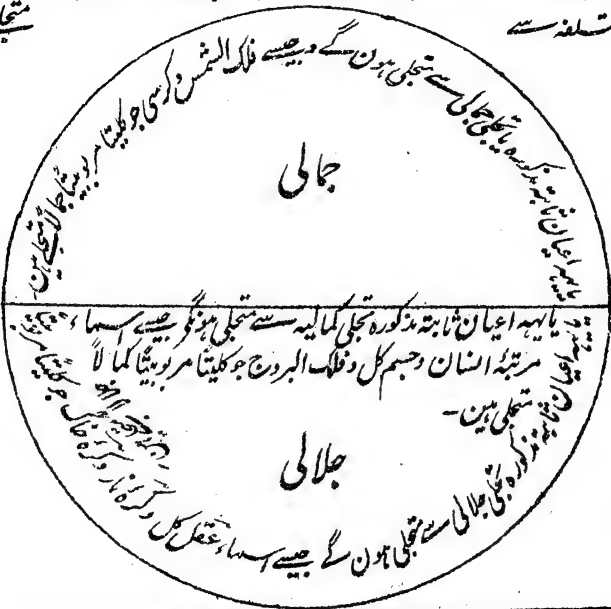 متجا
تلفہ سے
یا یہہ اعیان ثابتہ مذکورہ یا تجلی جمالی سے متجلی ہون گے ‌وجیسے فلک الشمس و کرسی جو کلیتاً مربوبیتاً جمالاً متجلے ہین۔
جمالی
یا یہہ اعیان ثابتہ مذکورہ تجلی کمالیہ سے متجلی ہونگو جیسے اسماء
مرتبۂ انسان وجسم کل و فلک البروج جو کلیتاً مربوبیتاً کمالاً
متجلی ہین۔
جلالی
یا یہہ اعیان ثابتہ مذکورہ تجلی جلالی سے متجلی ہون گے جیسے اسماء عقل کل و کرۂ نار و کرۂ خاک جو کلیتاً